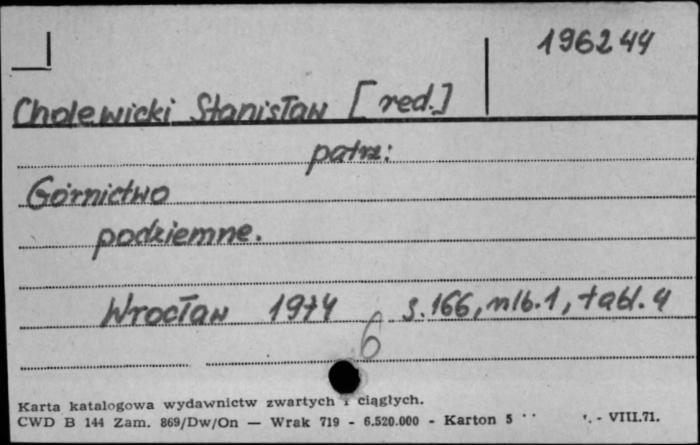 196244
Cholewicki Stanisław [red.]
patrz:
Górnictwo
podziemne.
Wrocław 1974 s. 166, nlb. 1, tabl. 4
6
Karta katalogowa wydawnictw zwartych i ciągłych.
CWD B 144 Zam. 869/Dw/On — Wrak 719 - 6.520.000 - Karton 5 - VIII.71.